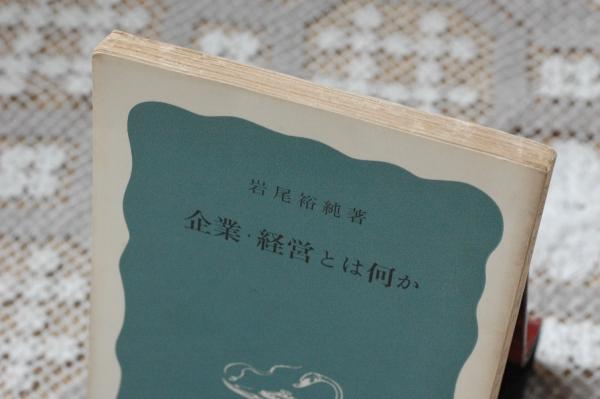 岩尾裕純著
企業・経営とは何か